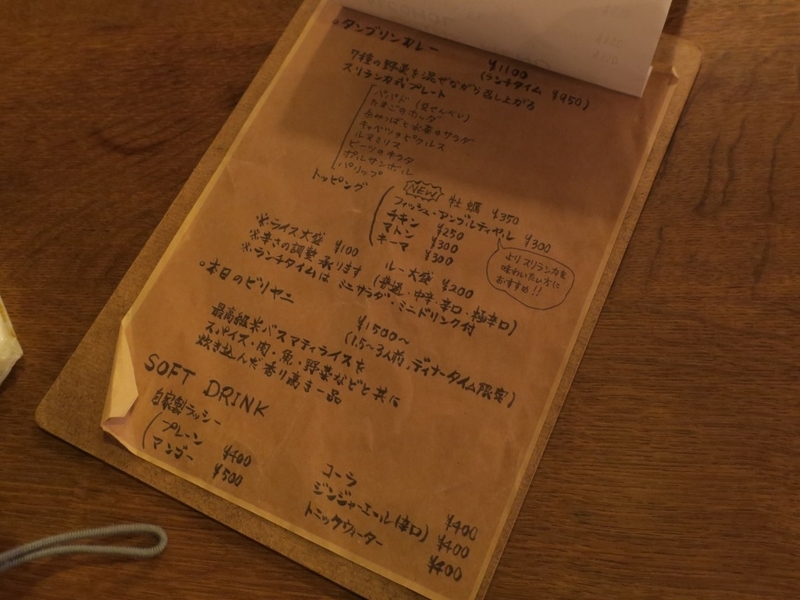 。タンブリンカレー ¥1100
(ランチタイム ¥950)
7種の野菜を混ぜながら召し上がる
スリランカ式プレート
パパド(豆せんべい)
たまごのホッダ
キャベツのピクルス
ルヌミリス
ビーツのキラタ
ポルサンボル
パリップ
トッピング
NEW 牡蠣 ¥350
フィッシュ・アンブルティヤル ¥300
チキン ¥250
マトン ¥300
キーマ ¥300
よりスリランカを
味わいたい方に
おすすめ!!
※ライス大盛 ¥100 ルー大盛 ¥200
※辛さの調整承ります (普通・中辛・辛口・極辛口)
※ランチタイムは ミニサラダ・ミニドリンク付
。本日のビリヤニ ¥1500〜
(1.5〜3人前、ディナータイム限定)
最高級米バスマティライスを
スパイス・肉・魚・野菜などと共に
炊き込んだ香り高き一品
SOFT DRINK
自家製ラッシー
プレーン ¥400
マンゴー ¥500
コーラ ¥400
ジンジャーエール(辛口) ¥400
トニックウォーター ¥400